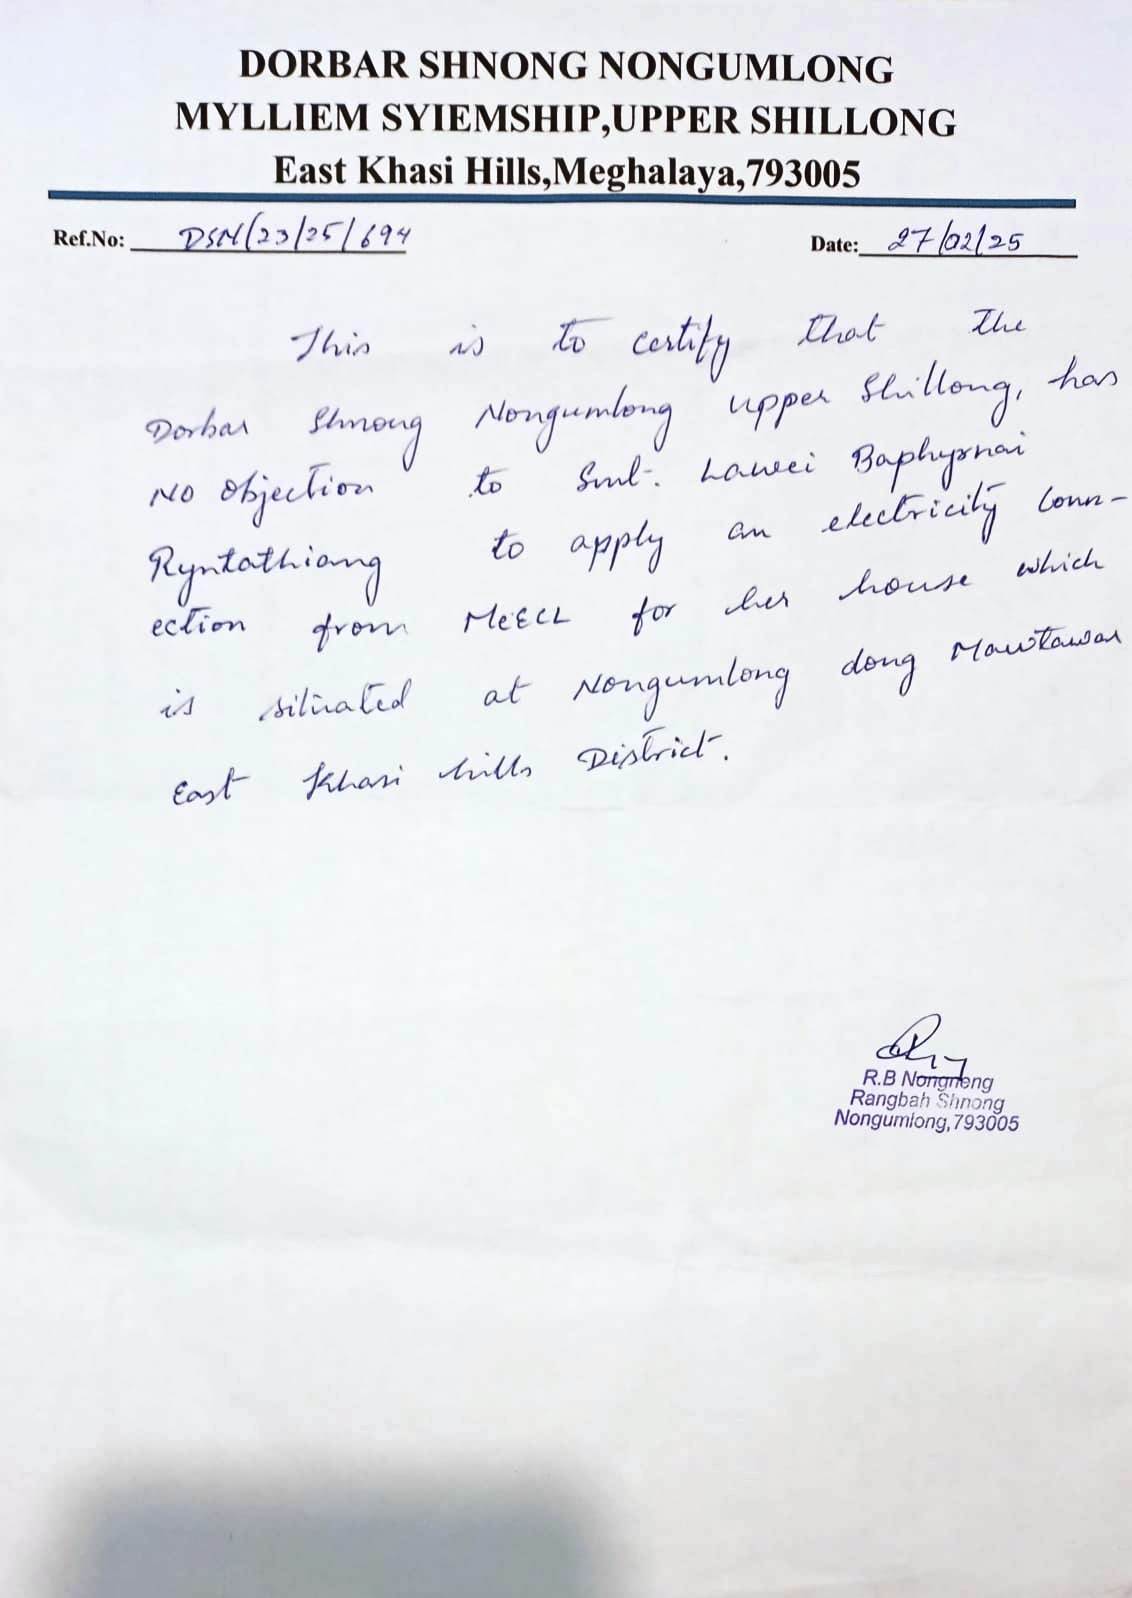 DORBAR SHNONG NONGUMLONG
MYLLIEM SYIEMSHIP,UPPER SHILLONG
East Khasi Hills,Meghalaya,793005
Ref.No: DSN/23/25/694
Date: 27/02/25
This is to certify that the
Dorbar Shnong Nongumlong upper Shillong, has
NO objection to Smt. Lawei Baphyrnai
Ryntathiang to apply an electricity conn-
ection from MeECL for her house which
is situated at Nongumlong dong Mawtawar
East Khasi hills District.
R.B Nongneng
Rangbah Shnong
Nongumlong,793005